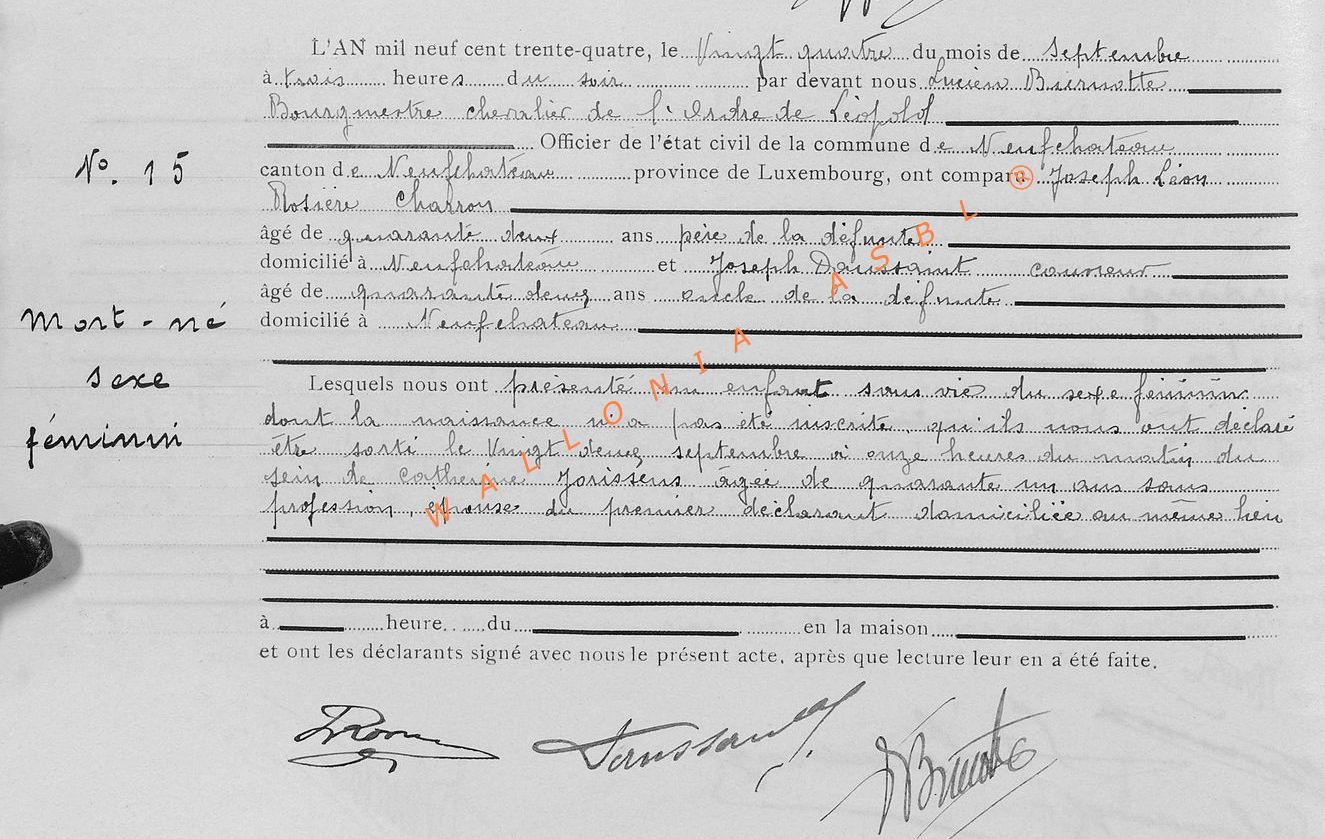 L'AN mil neuf cent trente-quatre, le Vingt quatre du mois de Septembre
à trois heures du soir par devant nous Lucien Burnotte
Bourgmestre chevalier de l'Ordre de Léopold
Officier de l'état civil de la commune de Neufchateau
N°. 15
canton de Neufchateau province de Luxembourg, ont comparu Joseph Léon
Rosière Charron
âgé de quarante deux ans père de la défunte
domicilié à Neufchateau et Joseph Daussaint couvreur
âgé de quarante deux ans oncle de la défunte
domicilié à Neufchateau
Mort-né
sexe
féminin
Lesquels nous ont présenté un enfant sans vie du sexe féminin
dont la naissance n'a pas été inscrite, qu'ils nous ont déclaré
être sorti le Vingt deux septembre à onze heures du matin du
sein de Catherine Jorissens âgée de quarante un ans sans
profession, épouse du premier déclarant domiciliée au même lieu
à heure du en la maison
et ont les déclarants signé avec nous le présent acte, après que lecture leur en a été faite.
Daussaint
WALLONIA ASBL ®